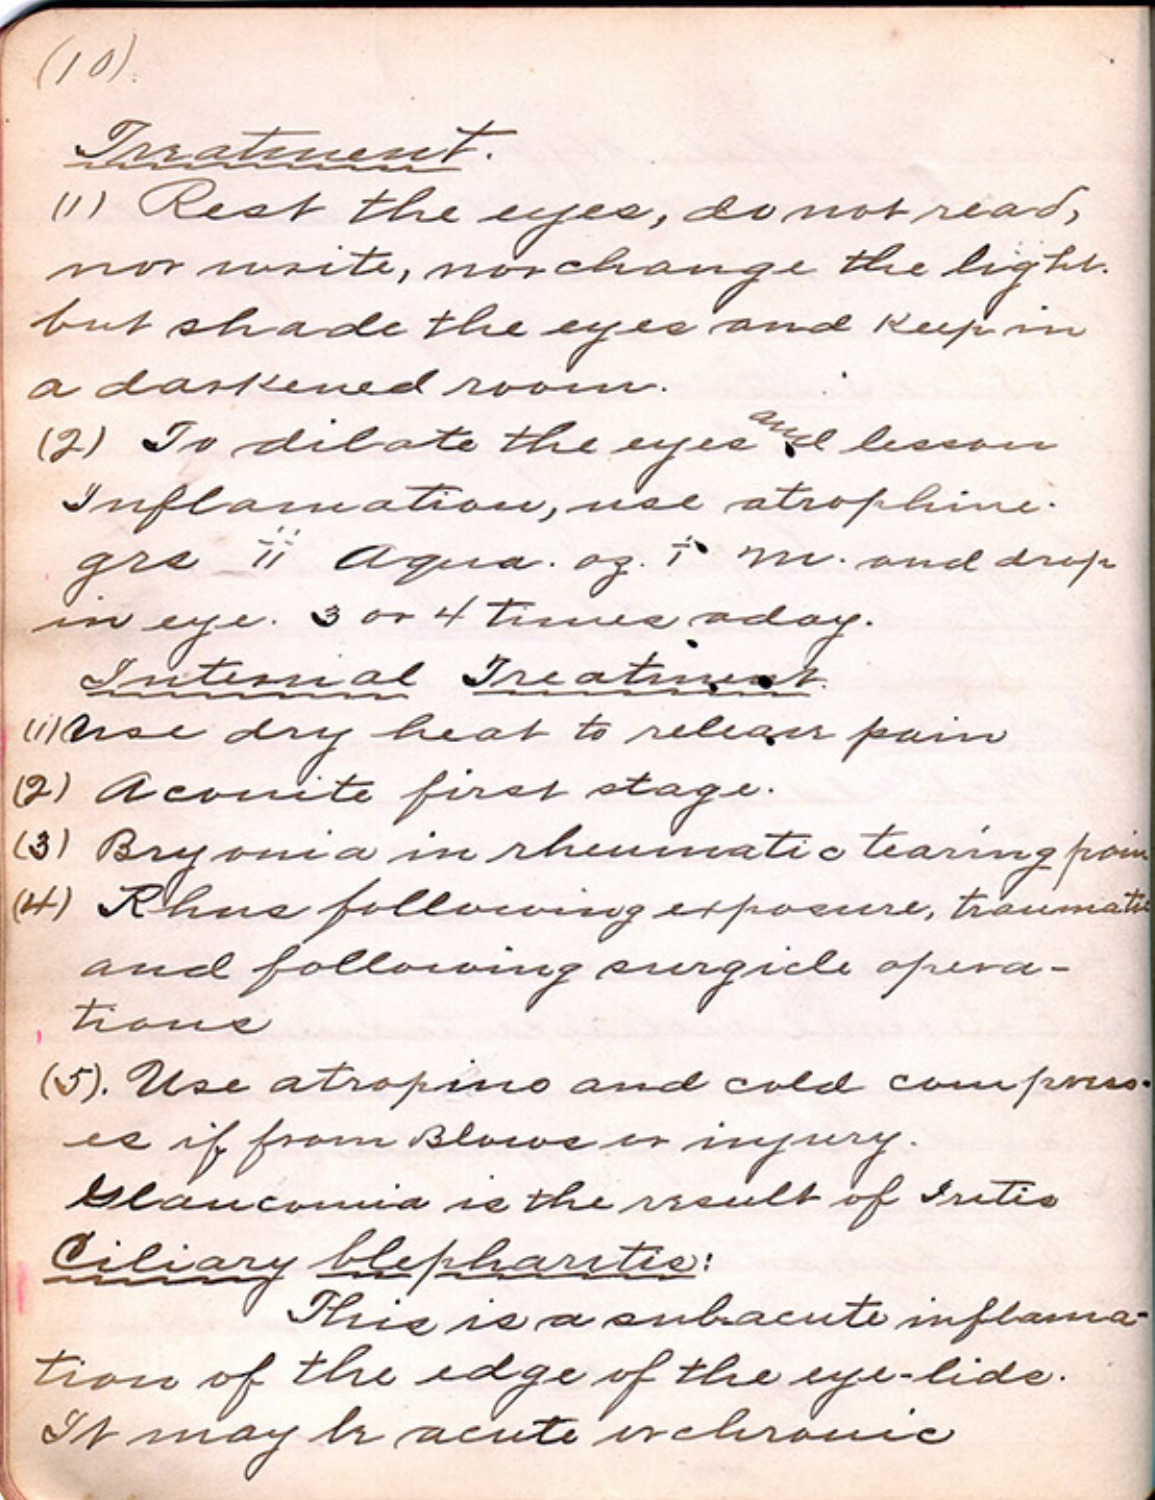 (10).
Treatment.
(1) Rest the eyes, do not read,
nor write, nor change the light.
but shade the eyes and keep in
a darkened room.
(2) To dilate the eyes and lesson
Inflamation, use atrophine.
grs ii Aqua. oz. i M. and drop
in eye. 3 or 4 times aday.
Internal Treatment.
(1) Use dry heat to releav pain
(2) Aconite first stage.
(3) Bryonia in rheumatic tearing pain
(4) Rhus following exposure, traumatic
and following surgicle opera-
tions
(5). Use atropino and cold compress-
es if from Blows or injury.
Glaucomia is the result of Iritis
Ciliary blepharitis:
This is a subacute inflama-
tion of the edge of the eye-lids.
It may be acute or chronic